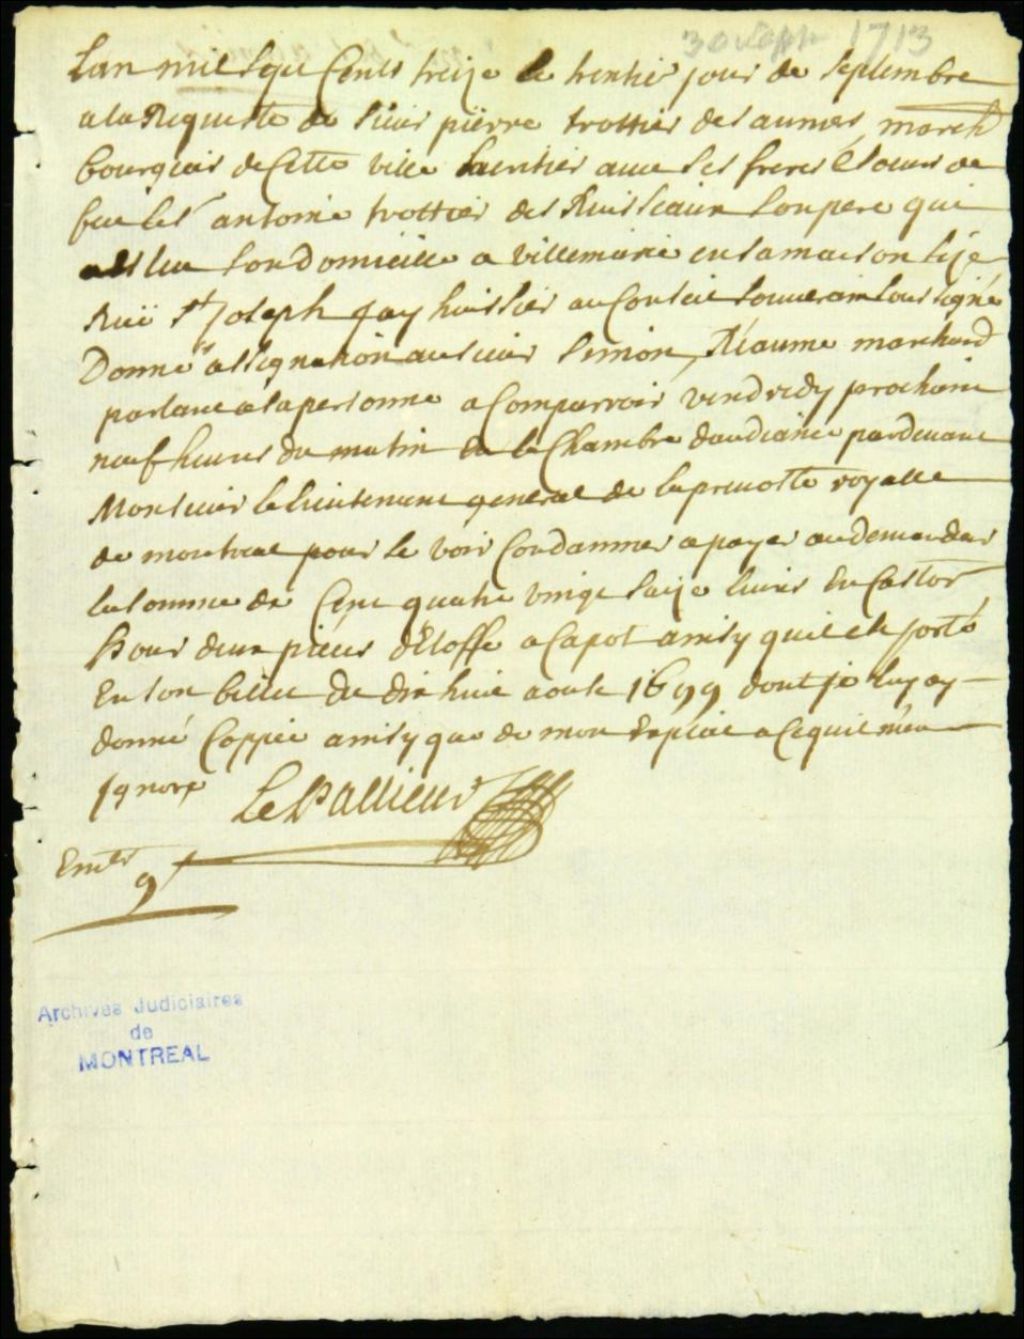 30 Sept 1713
Lan mil sept Cents treize le trentie jour de septembre
a la Requeste de sieur pierre trottier desaunes march
bourgeois de Cette ville heritier avec ses freres & soeurs de
feu le Sr antoine trottier des Ruisseaux son pere qui
a esleu son domicille a villemarie en sa maison size
Rue St Joseph Jay huissier au Conseil souverain soussigné
Donné assignation au sieur simon Réaume marchand
parlant a sa personne a Comparroir vendredy prochain
neuf heures du matin en la Chambre daudiance pardevant
Monsieur le lieutenant general de la prevosté royalle
de montreal pour se voir Condamner a payer au demandeur
la somme de Cent quatre vingt saize livres En Castor
Pour deux pieces d'Etoffe a Capot ainsy quil est porté
En son billet du dix huit aoust 1699 dont je luy ay
donné Coppie ainsy que de mon Exploit a Ce quil n'en
Ignore LePallieur
Archives Judiciaires
de
MONTREAL